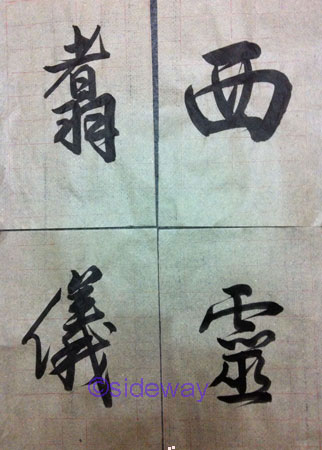 西靈
翥儀
©sideway